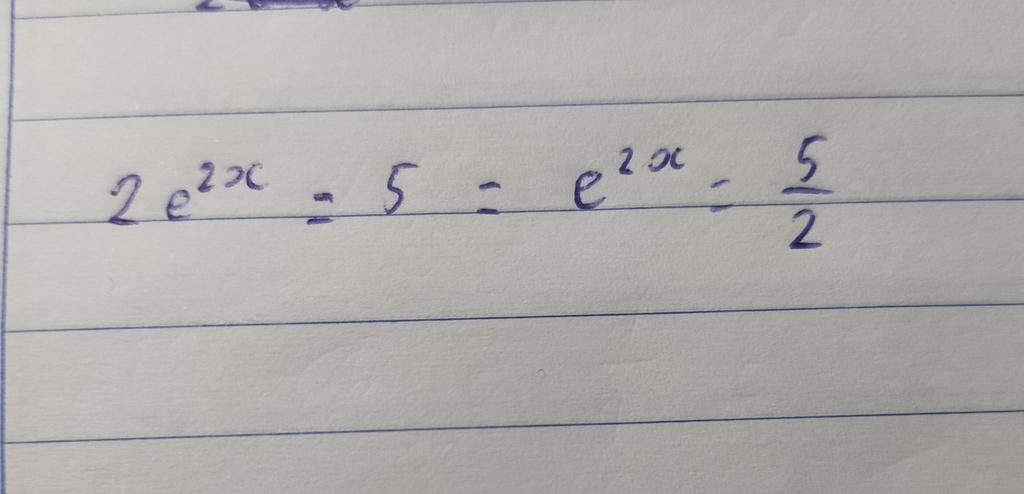 2e^{2x} = 5 = e^{2x} = \frac{5}{2}